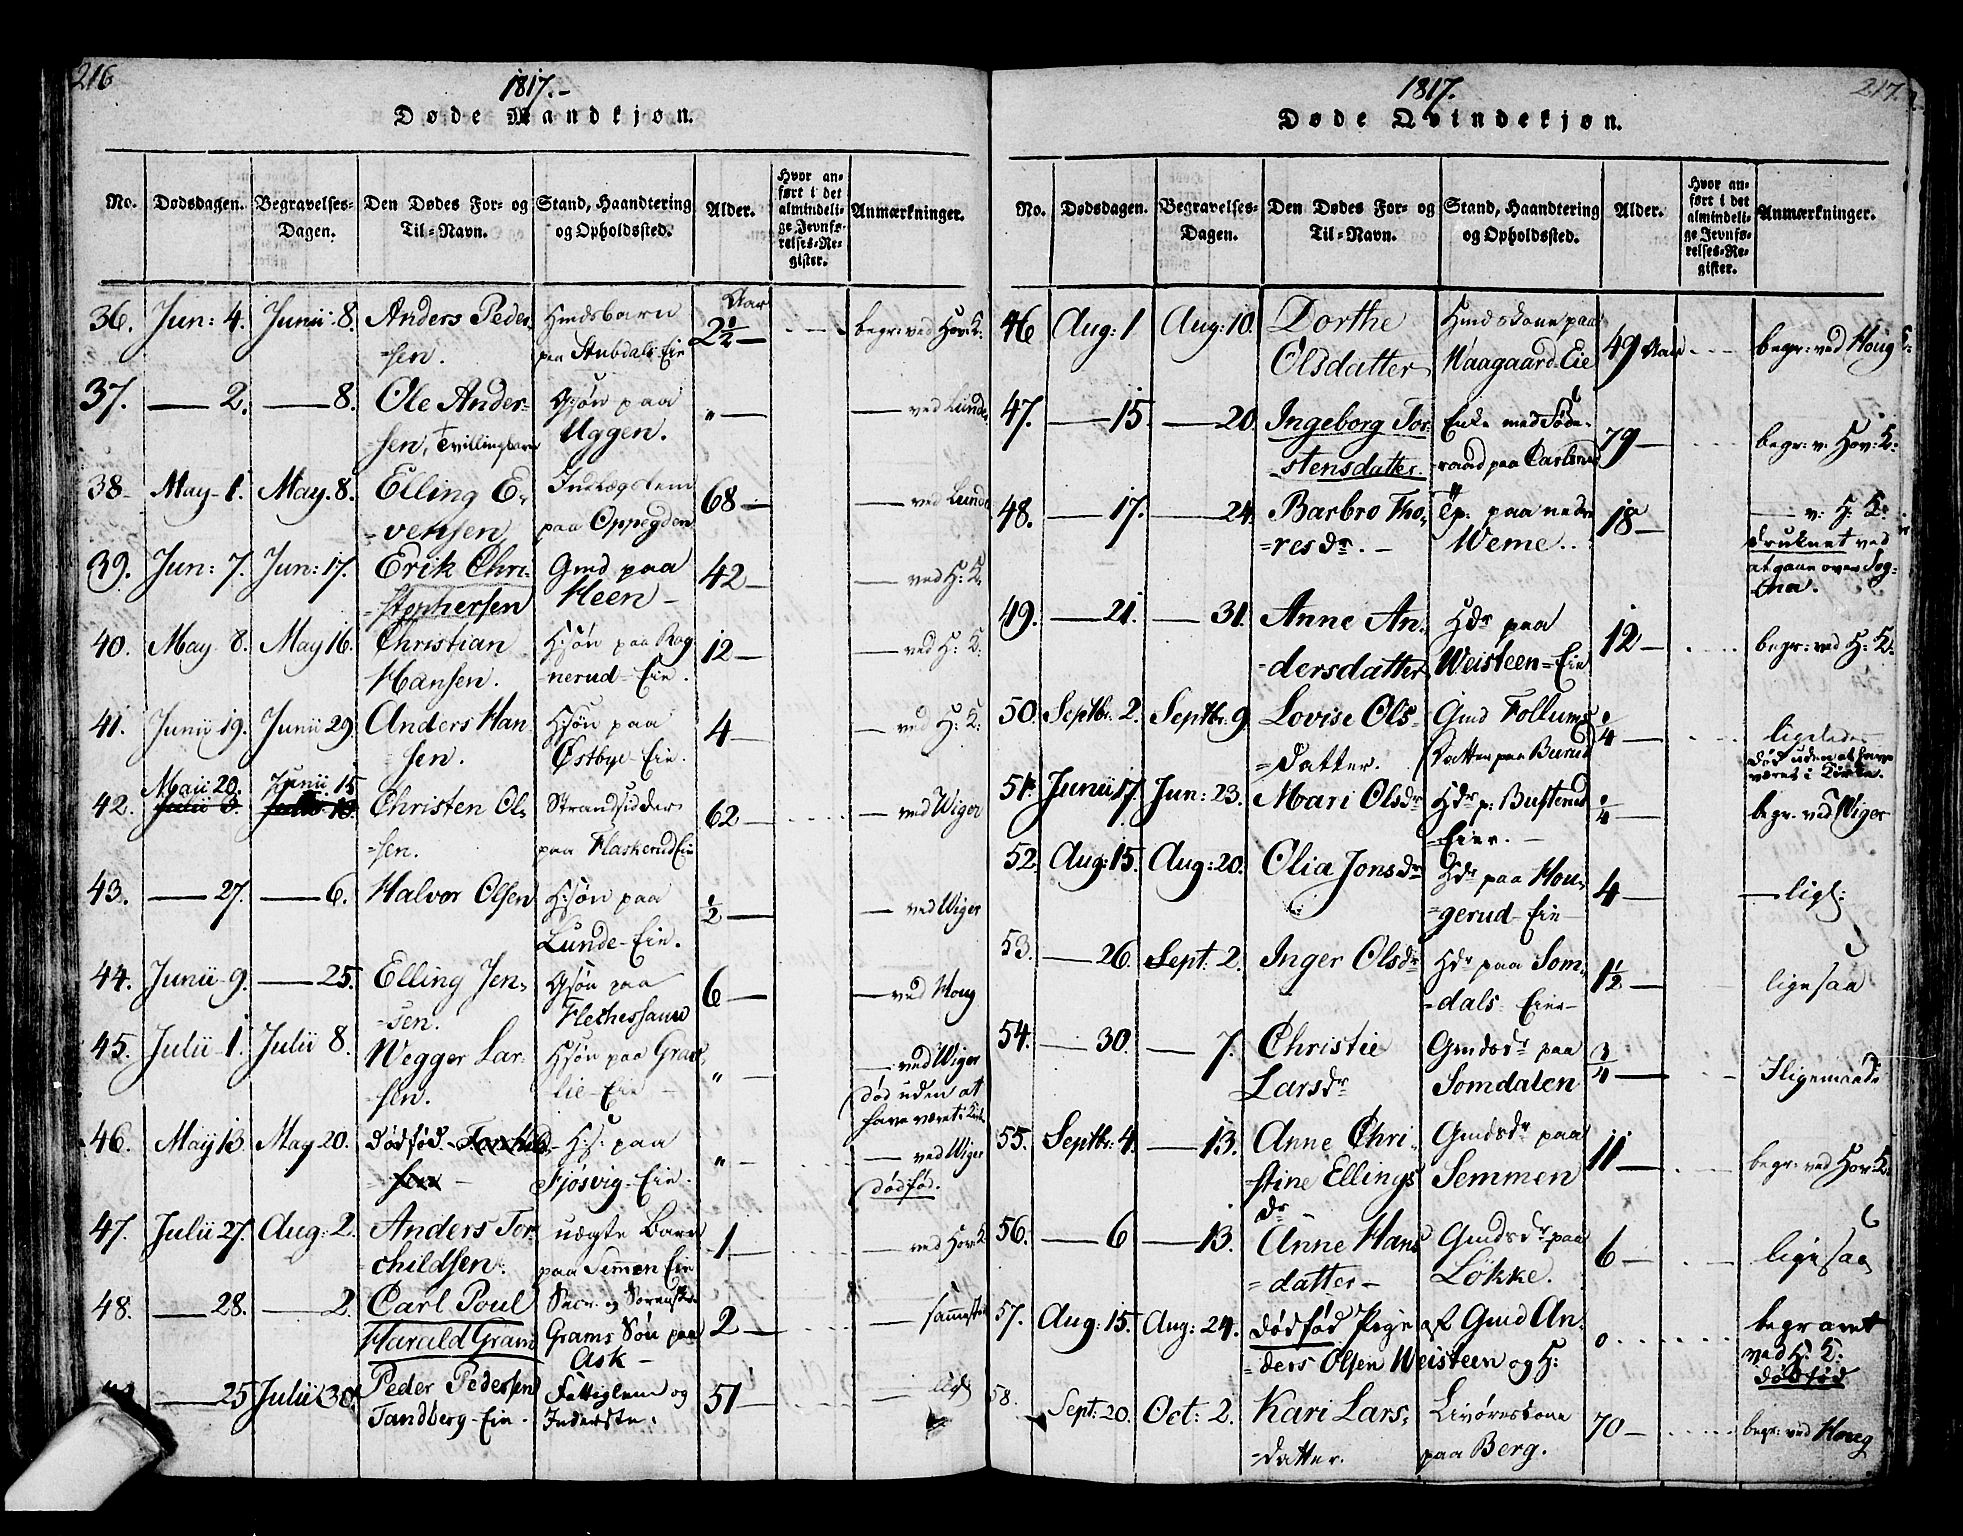 216
1817.-
Døde Mandkjøn.
No. Dødsdagen. Begravelses-Dagen. Den Dødes For- og Til-Navn. Stand, Haandtering og Opholdssted. Alder. Hvor anført i det almindelige Jevnførelses-Register. Anmærkninger.
36. Jun: 4. Junii 8. Anders Peder- Huusbarn Aar 2½ — begr: ved Hov: K:
=sen. paa Stubdals Eie
37. — 2. — 8. Ole Ander- Gsøn paa „ — — ved Lunde
=sen, Tvillingbarn Uggen.
38. May 1. May. 8. Elling E- Indlægslem 68 — — ved Lunde
=vensen paa Oppegden
39. Jun: 7. Jun: 17. Erik Chri- Gmd paa 42 — — ved H: K:
=stophersen Heen —
40. May 8. May 16. Christian H:søn paa Rag 12 — — ved H: K.
Hansen. nerud-Eie.
41. Junii 19. Junii 29 Anders Han H:søn paa 4 — — ved H: K.
=sen. Østbye-Eie.
Maii 20. Junii. 15
42. Christen Ol- Strandsidder 62 — — ved Wiger
=sen. paa Flaskerud Eie
43. — 27. — 6. Halvor Olsen H:søn paa ½ — — ved Wiger
Lunde-Eie.
44. Junii 9. — 25. Elling Jen- Gsøn paa 6 — — ved Houg
=sen.
45. Julii 1. Julii 8. Wegger Lar- Hsøn paa „ — — ved Wiger
=sen. lie-Eie død uden at
have været i Kirke
46. May 13. May 20. dødfød H:S: paa „ — — ved Wiger
Fjøsvig-Eie. dødfød.
47. Julii 27. Aug: 2. Anders Tor- uægte Barn 1 — — ved Hov: K
=childsen. paa Semmen Eie
48. — 28. — 2. Carl Poul Secr. og Sorenskr. 2 — — sammested
Harald Gram Grams Søn paa
Ask —
— 25 Julii 30. Peder Pedersen Fattiglem og 51 —
Tandberg-Eie. Inderste.
217.
1817.
Døde Qvindekjøn.
No. Dødsdagen. Begravelses-Dagen. Den Dødes For- og Til-Navn. Stand, Haandtering og Opholdssted. Alder. Hvor anført i det almindelige Jevnførelses-Register. Anmærkninger.
46 Aug: 1 Aug: 10. Dorthe Huuskone paa 49 Aar begr: ved Houg K:
Olsdatter Waagaard-Eie
47. — 15. — 20. Ingeborg Tor- Enke med Føde- 79 — begr: v. Hov: K.
stensdatter. raad paa
48. — 17. — 24. Barbro Tho- Tp: paa nedre 18 — — v: H: K:
=resdr. — Weme.. druknet ved
at gaae over Sog-
na.
49. — 21. — 31. Anne An- Hdr paa 12 — begr: ved H: K.
=dersdatter Weisteen=Eie
50. Septbr. 2. Septbr. 9. Lovise Ols- Gmd Follums ¼ — ligeledes
=datter. Datter paa Burud død uden at have
været i Kirke.
51. Junii 17. Jun: 23. Mari Olsdr Hdr p: Busterud ¼ — begr. ved Wiger
Eier. —
52. Aug: 15. Aug: 20. Olia Jonsdr Hdr paa Hou- 4 — — ligs:
=gerud-Eie
53. — 26. Sept: 2. Inger Olsdr Hdr paa Som- 1½ — ligesaa
=dals-Eie
54. — 30. — 7. Christie Gmdsdr paa ¾ — Ligemaade
Larsdr Somdalen
55. Septbr. 4. — 13. Anne Chri- Gmdsdr paa 11 — begr: ved Hov: K:
=stine Ellings Semmen
dr
56. — 6 — 13. Anne Hans Gmdsdr paa 6 — ligesaa
=datter — Løkke.
57. Aug: 15. Aug: 24. dødfød Pige af Gmd An- 0 begravet
=ders Olsen Weisteen og H: ved H: K:
dødfød
58. Sept: 20. Oct: 2. Kari Lars- 70 — begr: ved Houg
=datter. paa Berg.